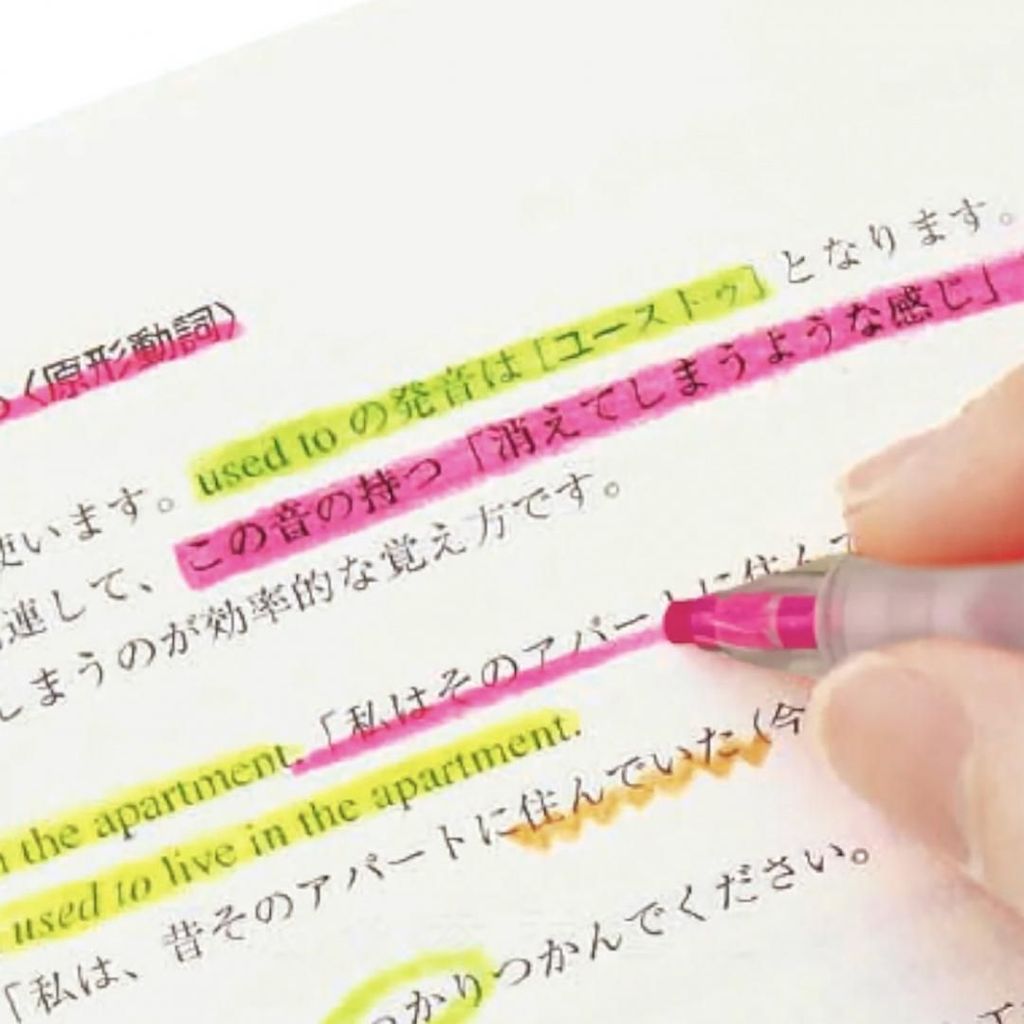 〈原形動詞〉
used to の発音は［ユーストゥ］となります。
使います。
この音の持つ「消えてしまうような感じ」
連して、
しまうのが効率的な覚え方です。
the apartment.「私はそのアパートに住んで
used to live in the apartment.
「私は、昔そのアパートに住んでいた（今
かりつかんでください。